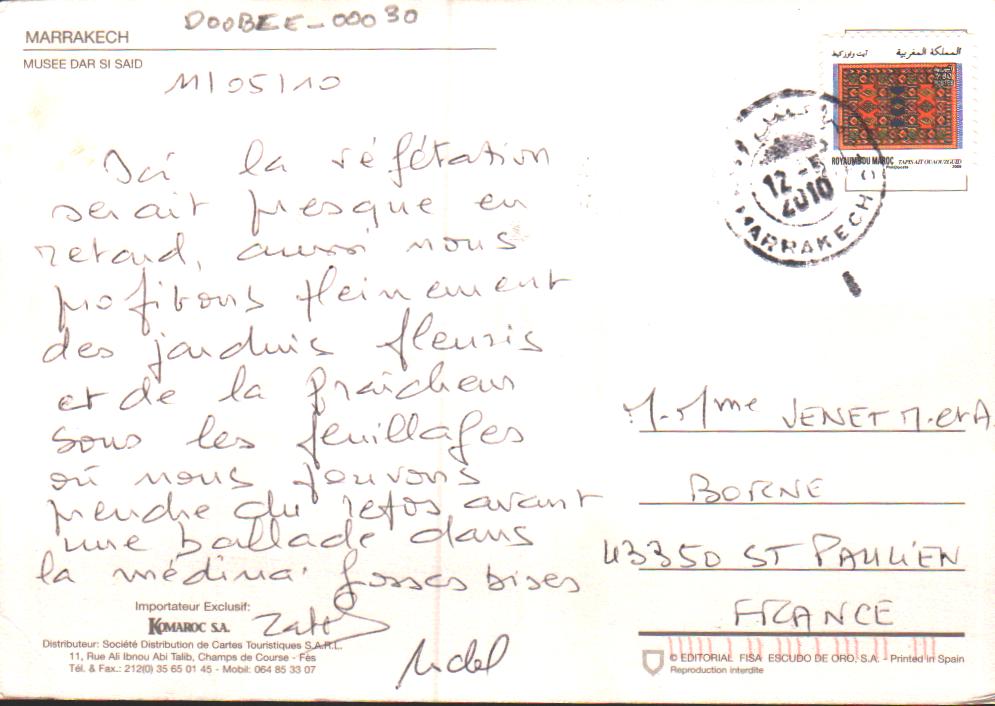 DOOBEE-00030
MARRAKECH
MUSEE DAR SI SAID
11/05/10
Ici la végétation
serait presque en
retard, aussi nous
profitons pleinement
des jardins fleuris
et de la fraîcheur
sous les feuillages
où nous pouvons
prendre du repos avant
une ballade dans
la médina. Grosses bises
Importateur Exclusif:
KOMAROC S.A.
Distributeur: Société Distribution de Cartes Touristiques S.A.R.L.
11, Rue Ali Ibnou Abi Talib, Champs de Course - Fès
Tél. & Fax.: 212(0) 35 65 01 45 - Mobil: 064 85 33 07
المملكة المغربية
ROYAUME DU MAROC TAPIS AIT OUAOUZGUID
12 -5
2010
MARRAKECH
M. Mme JENET M. et A
BORNE
43350 ST PAULIEN
FRANCE
© EDITORIAL FISA ESCUDO DE ORO, S.A. - Printed in Spain
Reproduction interdite